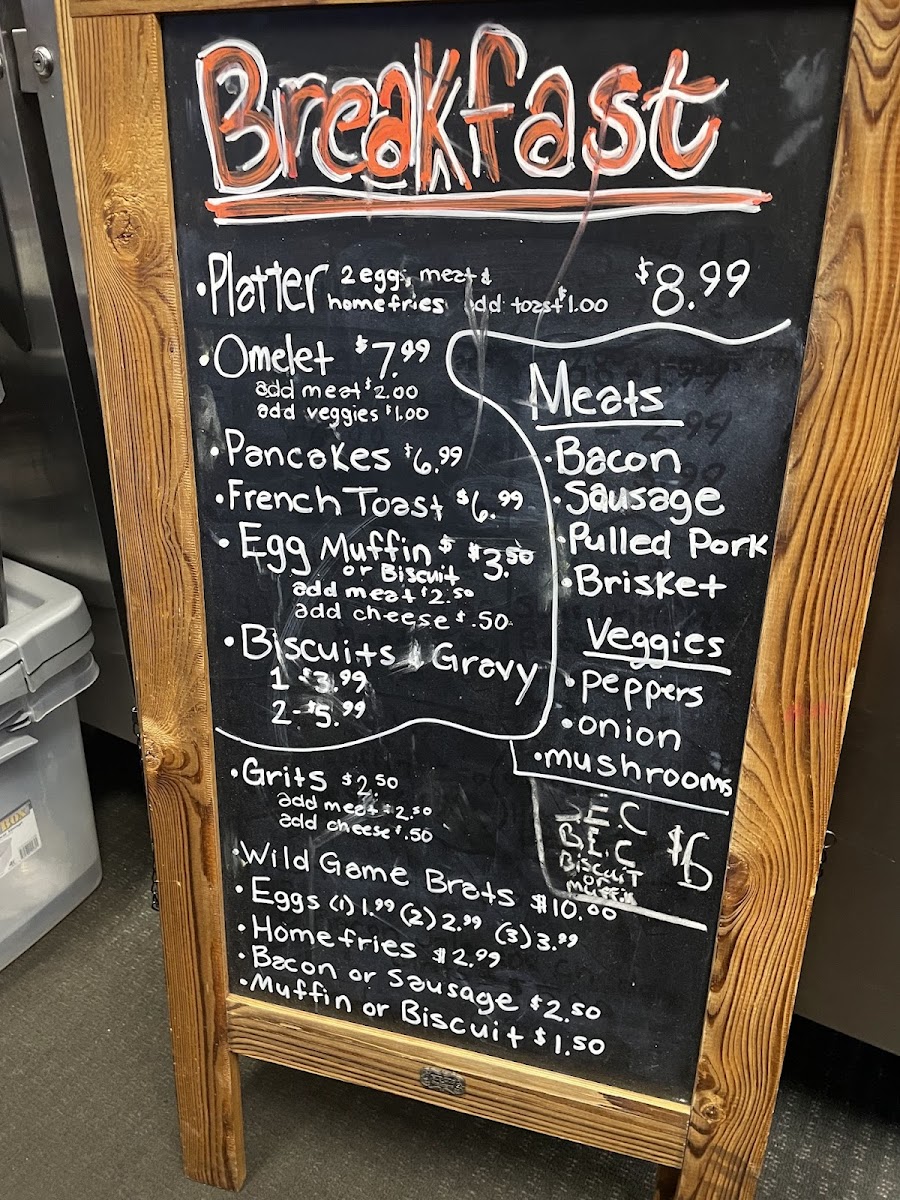 Breakfast
•Platter 2 eggs, meat &
homefries add toast $1.00 $8.99
•Omelet $7.99
add meat $2.00
add veggies $1.00
•Pancakes $6.99
•French Toast $6.99
•Egg Muffin $ $3.50
or Biscuit
add meat $2.50
add cheese $.50
•Biscuits & Gravy
1 $3.99
2-$5.99
Meats
•Bacon
•Sausage
•Pulled Pork
•Brisket
Veggies
•peppers
•onion
•mushrooms
•Grits $2.50
add meat $2.50
add cheese $.50
S.E.C
B.E.C $6
Biscuit
or
muffin
•Wild Game Brats $10.00
•Eggs (1) 1.99 (2) 2.99 (3) 3.99
•Homefries $2.99
•Bacon or Sausage $2.50
•Muffin or Biscuit $1.50
BOX